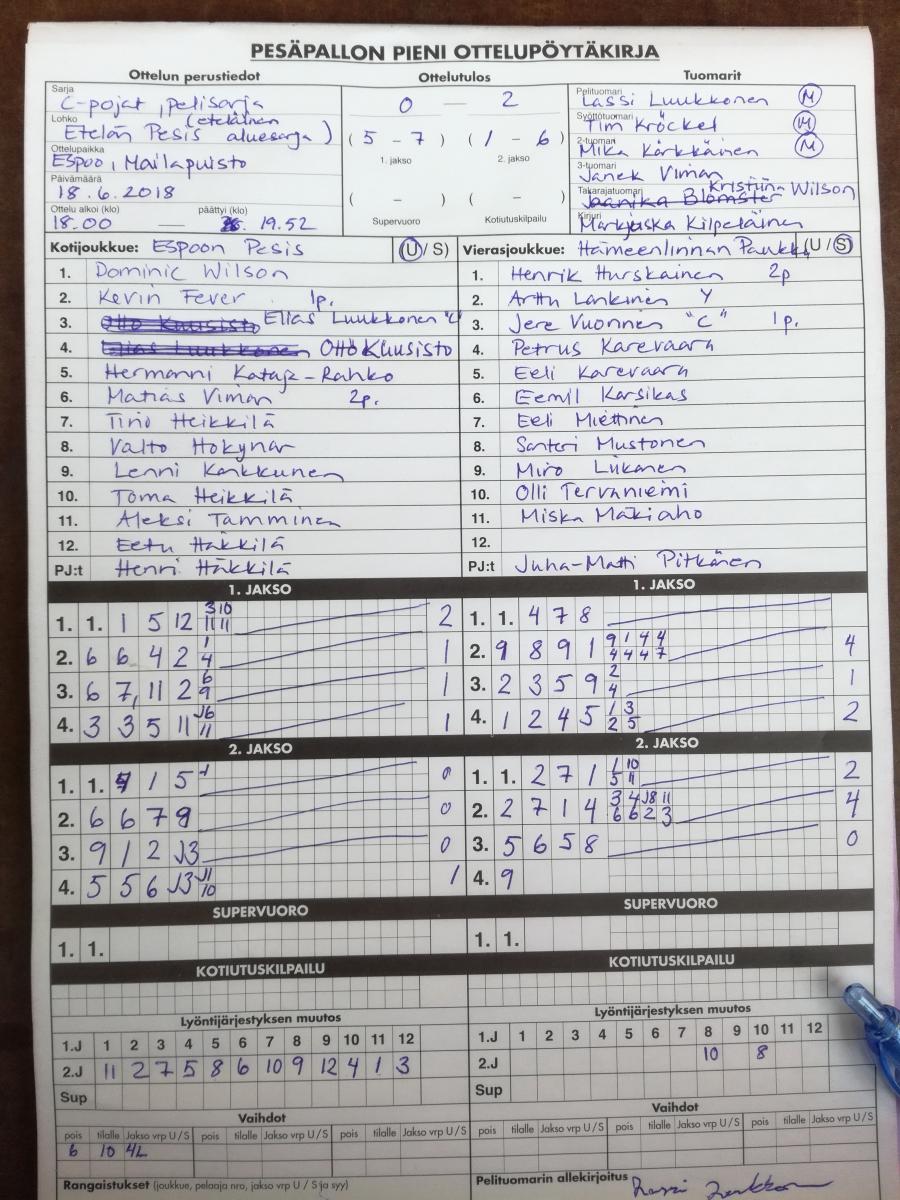 PESÄPALLON PIENI OTTELUPÖYTÄKIRJA
Ottelun perustiedot
Ottelutulos
Tuomarit
Sarja
C-pojat, pelisarja
Lohko (eteläinen
Etelän Pesis aluesarja )
Ottelupaikka
Espoo, Mailapuisto
Päivämäärä
18.6.2018
Ottelu alkoi (klo) päättyi (klo)
18.00 — 19.52
0 — 2
( 5 - 7 ) ( 1 - 6 )
1. jakso 2. jakso
( - ) ( - )
Supervuoro Kotiutuskilpailu
Pelituomari
Lassi Luukkonen M
Syöttötuomari
Tim Kröckel M
2-tuomari
Mika Kärkkäinen M
3-tuomari
Janek Viman
Takarajatuomari
Kristiina Wilson
Kirjuri
Kilpeläinen
Kotijoukkue: Espoon Pesis (U / S)
1. Dominic Wilson
2. Kevin Fever 1p.
3. Elias Luukkonen "C"
4. Otto Kuusisto
5. Hermanni Kataja-Rahko
6. Matias Viman 2p.
7. Tino Heikkilä
8. Valto Hokynar
9. Lenni Kankkunen
10. Toma Heikkilä
11. Aleksi Tamminen
12. Eetu Häkkilä
PJ:t Henri Häkkilä
Vierasjoukkue: Hämeenlinnan (U / S)
1. Henrik Hurskainen 2p
2. Arttu Lankinen Y
3. Jere Vuorinen "C" 1p.
4. Petrus Karevaara
5. Eeli Karevaara
6. Eemil Karsikas
7. Eeli Miettinen
8. Santeri Mustonen
9. Miro Liikanen
10. Olli Tervaniemi
11. Miska Mäkiaho
12.
PJ:t Juha-Matti Pitkänen
1. JAKSO
1. 1. 1 5 12 3 10 11 11 2
2. 6 6 4 2 1 4 1
3. 6 7, 11 2 6 9 1
4. 3 3 5 11 J6 11 1
1. JAKSO
1. 1. 4 7 8
2. 9 8 9 1 9 1 4 4 4 4 4 7 4
3. 2 3 5 9 2 4 1
4. 1 2 4 5 1 3 2 5 2
2. JAKSO
1. 1. 1 5 0
2. 6 6 7 9 0
3. 9 1 2 J3 0
4. 5 5 6 J3 J1 10 1
2. JAKSO
1. 1. 2 7 1 1 10 5 11 2
2. 2 7 1 4 3 4 J8 11 6 6 2 3 4
3. 5 6 5 8 0
4. 9
SUPERVUORO
1. 1.
SUPERVUORO
1. 1.
KOTIUTUSKILPAILU
KOTIUTUSKILPAILU
Lyöntijärjestyksen muutos
1.J 1 2 3 4 5 6 7 8 9 10 11 12
2.J 11 2 7 5 8 6 10 9 12 4 1 3
Sup
Lyöntijärjestyksen muutos
1.J 1 2 3 4 5 6 7 8 9 10 11 12
2.J 10 8
Sup
Vaihdot
pois tilalle Jakso vrp U / S pois tilalle Jakso vrp U / S pois tilalle Jakso vrp U / S
6 10 4L
Vaihdot
pois tilalle Jakso vrp U / S pois tilalle Jakso vrp U / S pois tilalle Jakso vrp U / S
Rangaistukset (joukkue, pelaaja nro, jakso vrp U / S ja syy)
Pelituomarin allekirjoitus